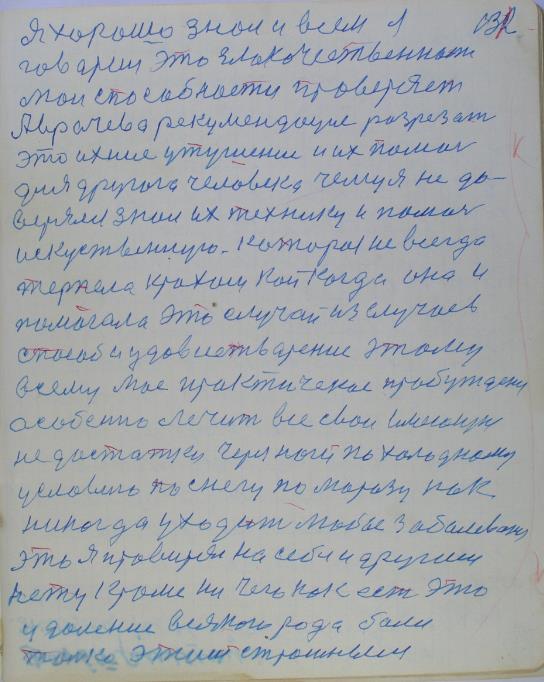 Я хорошо знал и всем я 132
говарил это злокачественност
мои способности проверяет
А врачева рекумендацие розрезат
это ихние утишение и их помоч
для другога человека чему я не до-
верял знал их технику и помоч
искуственную. которая не всегда
терпела крохом кой когда она и
помогала это случай из случаев
способ и удовлетварение этому
всему мое практическое пробуждени
особенно лечит все свои
недостатки через ноги по холодному
условию по снегу по морозу как
никогда уходит любые заболевани
это я проверял на себе и других
нету кроме ни чего как ест это
удаление всякого рода боли
только этим страшным